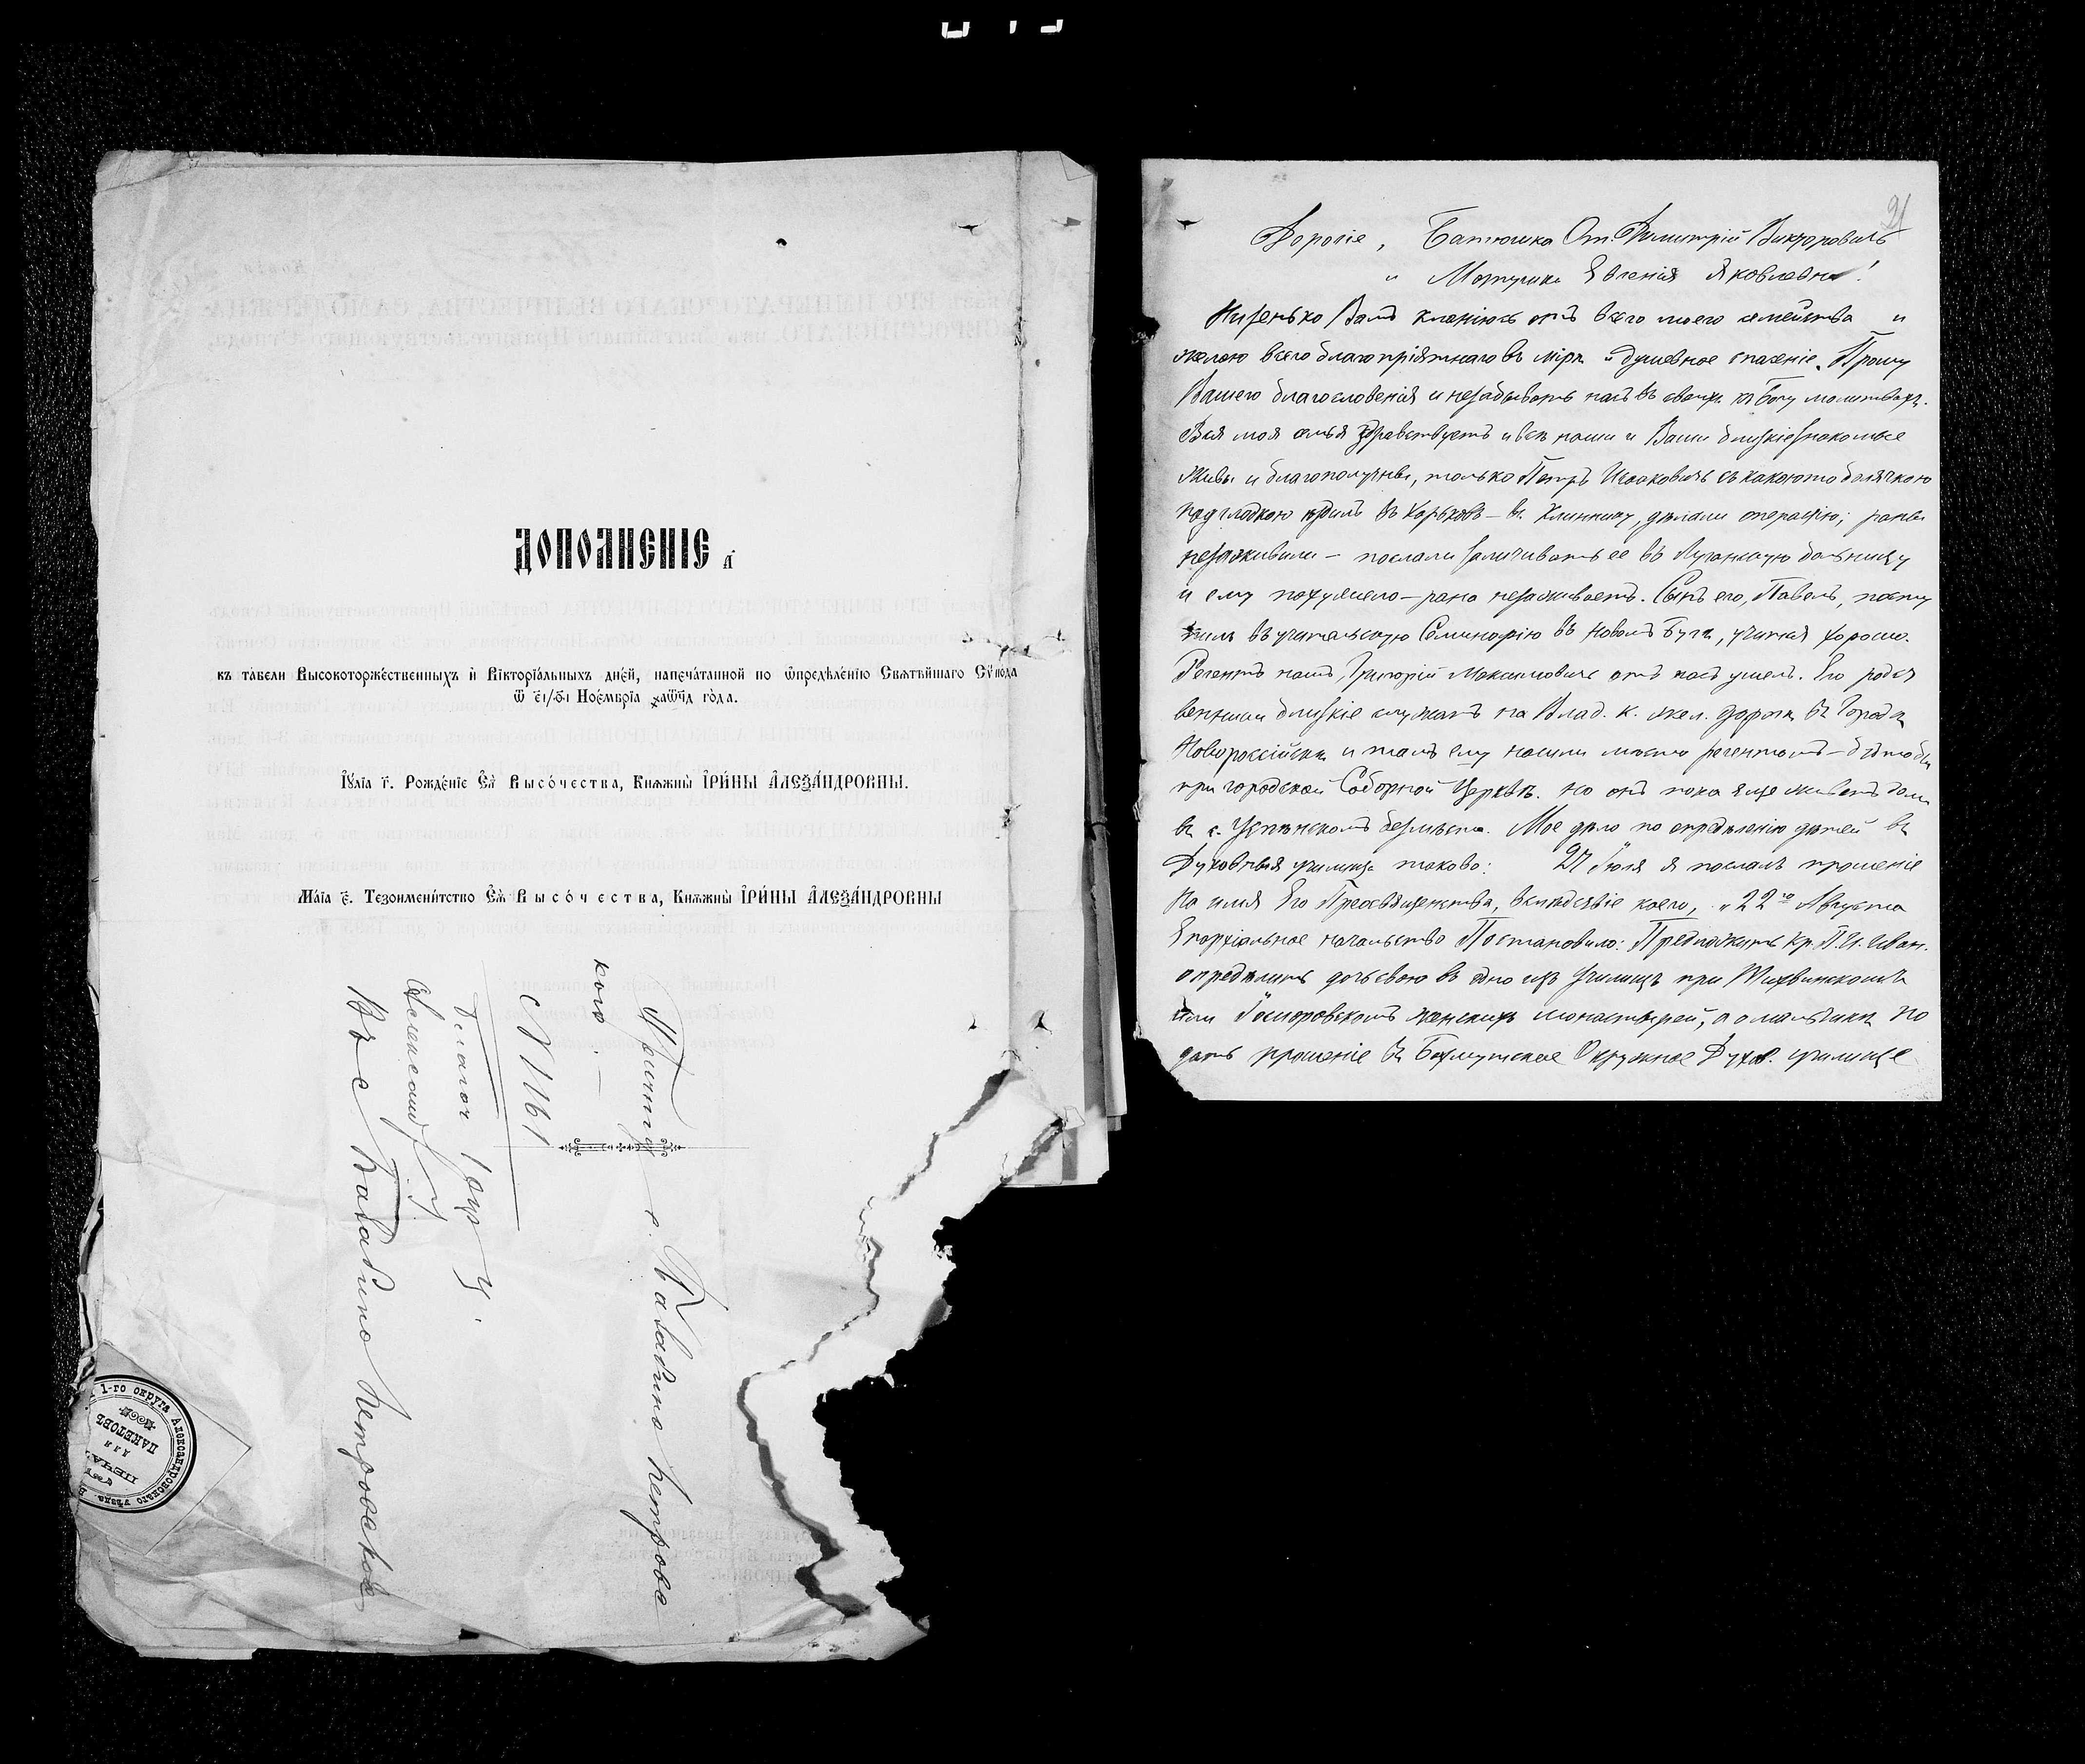 ДОПОЛНЕНІЕ а҃
къ табели Высокоторже́ственныхъ и҆ Вікторіа́льныхъ дне́й, напеча́танной по ѡ҆предѣле́нію Святѣ́йшаго Сѵ́нода
Ѿ є҃і/ Ное́мвріа го́да.
І҆у́ліа г҃. Рожде́ніе Є҆ѧ̀ Высо́чества, Княжны̀ І҆РИ́НЫ А҆ЛЕѮА́НДРОВНЫ.
Ма́іа є҃. Тезоимени́тство Є҆ѧ̀ Высо́чества, Княжны̀ І҆РИ́НЫ А҆ЛЕѮА́НДРОВНЫ
кого.
С № 1161
Священ
Въ с. Балабино Петровское
с. Балабино Петрово
1-го округа Александровскаго уѣзда
ПЕЧАТЬ
для
ПАКЕТОВЪ
21
Дорогіе, Батюшка От. Димитрій Викторовичъ
и Матушка Евгенія Яковлевна!
Низенько Вамъ кланіюсь отъ всего моего семейства и
желаю всего благопріятнаго въ мірѣ и душевное спасеніе. Прошу
Вашего благословенія и незабывать насъ въ своихъ къ Богу молитвахъ.
Вся моя семья здравствуетъ и всѣ наши и Ваши близкіе знакомые
живы и благополучны, только Петръ Исааковичъ съ какоюто болячкою
ѣздилъ въ Харьковъ — въ Клиннику, дѣлали операцію; раны
незаживили — послали залѣчивать ее въ Луганскую больницу
и ему похужшело — рана незаживаетъ. Сынъ его, Павелъ, посту
пилъ въ учительскую Семинарію въ Новомъ Бугѣ, учится хорошо.
Регентъ нашъ, Григорій Максимовичъ отъ насъ ушелъ. Его родст
венники близкіе служатъ на Влад. к. жел. дорогѣ въ Городѣ
Новороссійскѣ и тамъ ему нашли мѣсто регентомъ — бутобы
при городской Соборной Церквѣ. но онъ пока еще живетъ дома
въ с. Успенскомъ безъ мѣста. Мое дѣло по опредѣленію дѣтей въ
Духовныя училища таково: 27 Іюля я послалъ прошеніе
на имя Его Преосвященства, вслѣдствіе коего, „22го Августа
Епархіальное начальство Постановило: Предложить Кр. П. И. Иван.
опредѣлить дочь свою въ одно изъ училищъ при Тихвинскомъ
или Іосифовскомъ женскихъ монастырей, а о мальчикѣ по
дать прошеніе въ Бахмутское Окружное Духов. училище